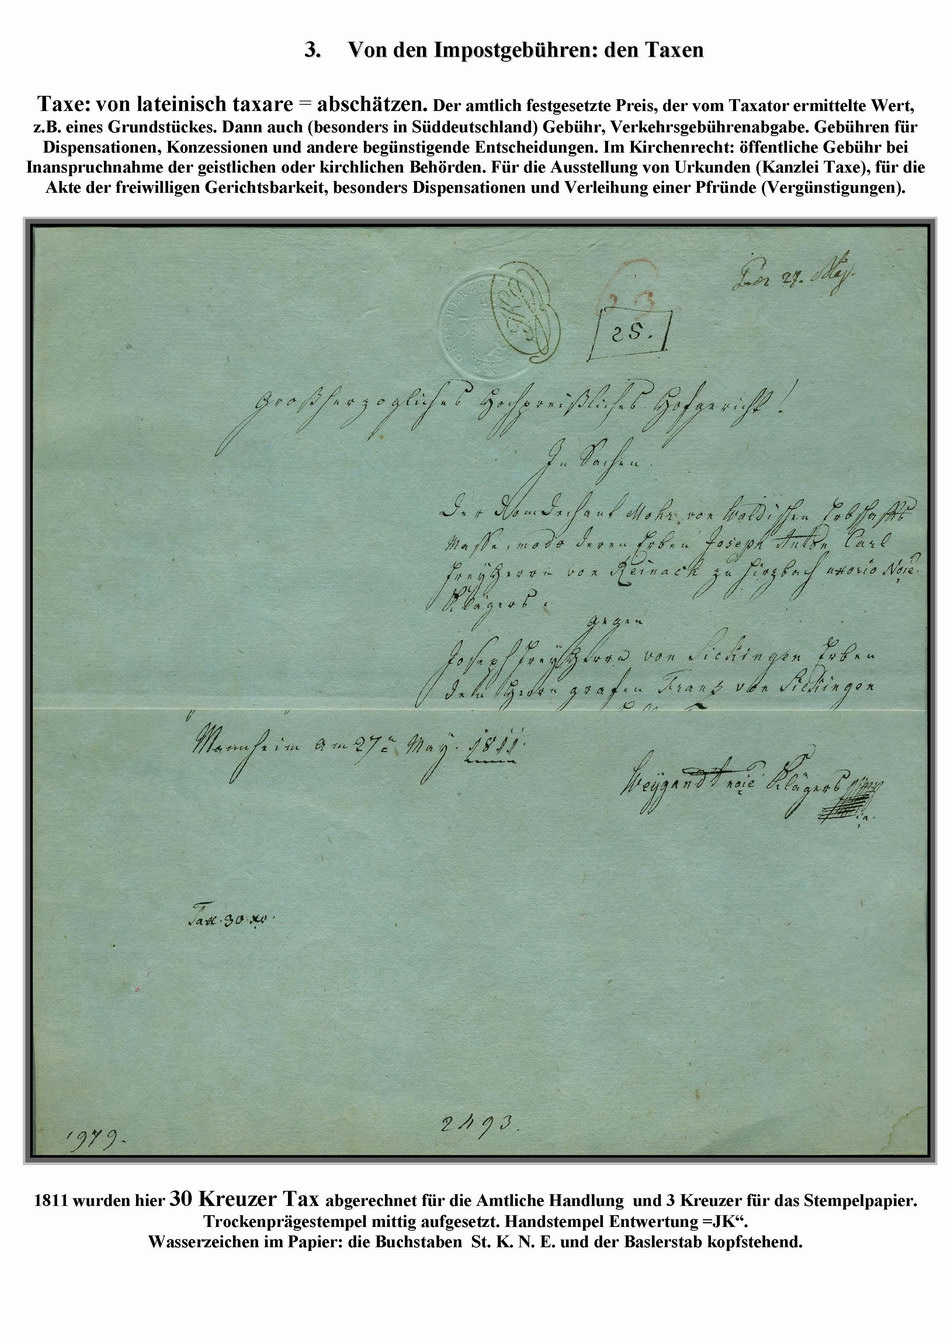 3. Von den Impostgebühren: den Taxen
Taxe: von lateinisch taxare = abschätzen. Der amtlich festgesetzte Preis, der vom Taxator ermittelte Wert,
z.B. eines Grundstückes. Dann auch (besonders in Süddeutschland) Gebühr, Verkehrsgebührenabgabe. Gebühren für
Dispensationen, Konzessionen und andere begünstigende Entscheidungen. Im Kirchenrecht: öffentliche Gebühr bei
Inanspruchnahme der geistlichen oder kirchlichen Behörden. Für die Ausstellung von Urkunden (Kanzlei Taxe), für die
Akte der freiwilligen Gerichtsbarkeit, besonders Dispensationen und Verleihung einer Pfründe (Vergünstigungen).
27. May.
3
25.
Großherzogliches Hochpreißliches Hofgericht!
In Sachen
Der Domdechant Mohr von Waldischen Erbschafts
Masse, modo deren Erben Joseph Anton Carl
Freyherrn von Reinach zu Hirzbach uxorio Noie
Klägers.
gegen
Joseph Freyherrn von Sickingen Erben
dem Herrn grafen Franz von Sickingen
Mannheim am 27n May. 1811.
Weygandt noie Klägers
Tax. 30 xr.
1979.
2493.
1811 wurden hier 30 Kreuzer Tax abgerechnet für die Amtliche Handlung und 3 Kreuzer für das Stempelpapier.
Trockenprägestempel mittig aufgesetzt. Handstempel Entwertung =JK“.
Wasserzeichen im Papier: die Buchstaben St. K. N. E. und der Baslerstab kopfstehend.